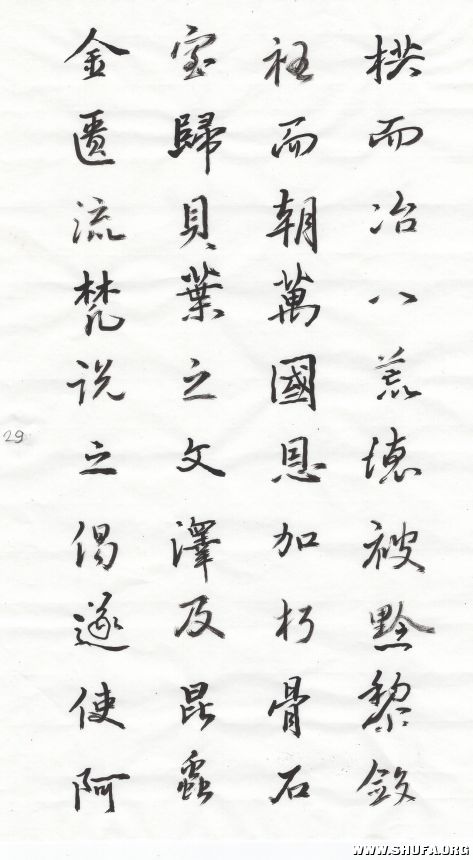 拱而治八荒德被黔黎斂
衽而朝萬國恩加朽骨石
室歸貝葉之文澤及昆蟲
金匱流梵说之偈遂使阿
29
WWW.SHUFA.ORG